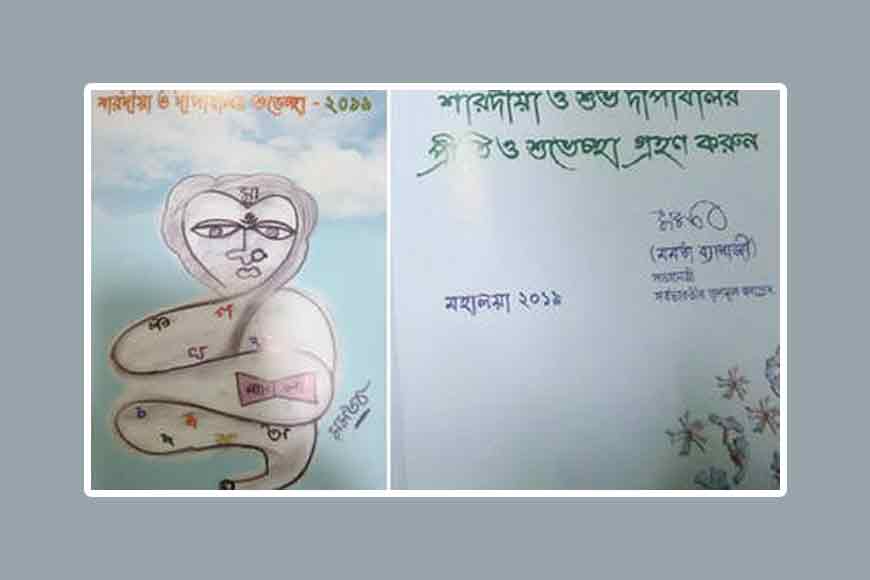 শারদীয়া ও দীপাবলির শুভেচ্ছা - ২০১৯
মা
মমতা
শারদীয়া ও শুভ দীপাবলির
প্রীতি ও শুভেচ্ছা গ্রহণ করুন
মমতা
(মমতা ব্যানার্জী)
সভানেত্রী
সর্বভারতীয় তৃণমূল কংগ্রেস
মহালয়া ২০১৯